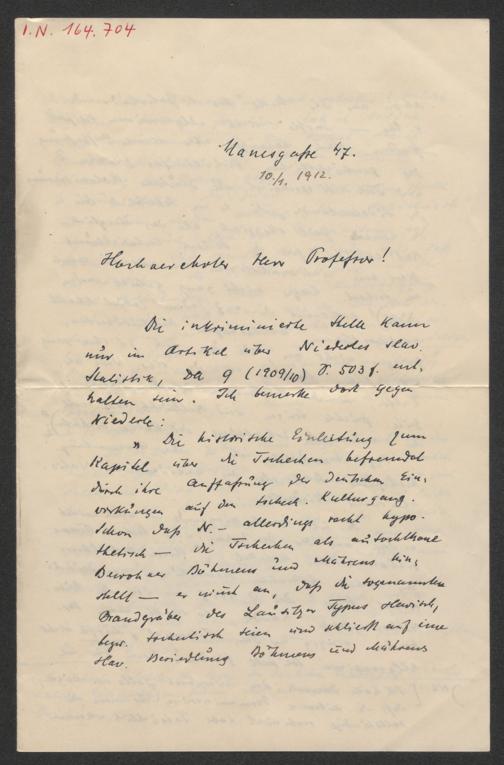 I.N. 164.704
Manesgasse 47.
10./I. 1912.
Hochverehrter Herr Professor!
Die inkriminierte Stelle kann
nur im Artikel über Niederles slav.
Statistik, DA 9 (1909/10) S. 503 f. ent-
halten sein. Ich bemerke dort gegen
Niederle:
„Die historische Einleitung zum
Kapitel über die Tschechen befremdet
durch ihre Auffassung der deutschen Ein-
wirkungen auf den tschech. Kulturgang.
Schon daß N. – allerdings recht hypo-
thetisch – die Tschechen als autochthone
Bewohner Böhmens und Mährens hin-
stellt – er nimmt an, daß die sogenannten
Brandgräber des Lausitzer Typus slavisch,
bezw. tschechisch seien und schließt auf eine
slav. Besiedlung Böhmens und Mährens